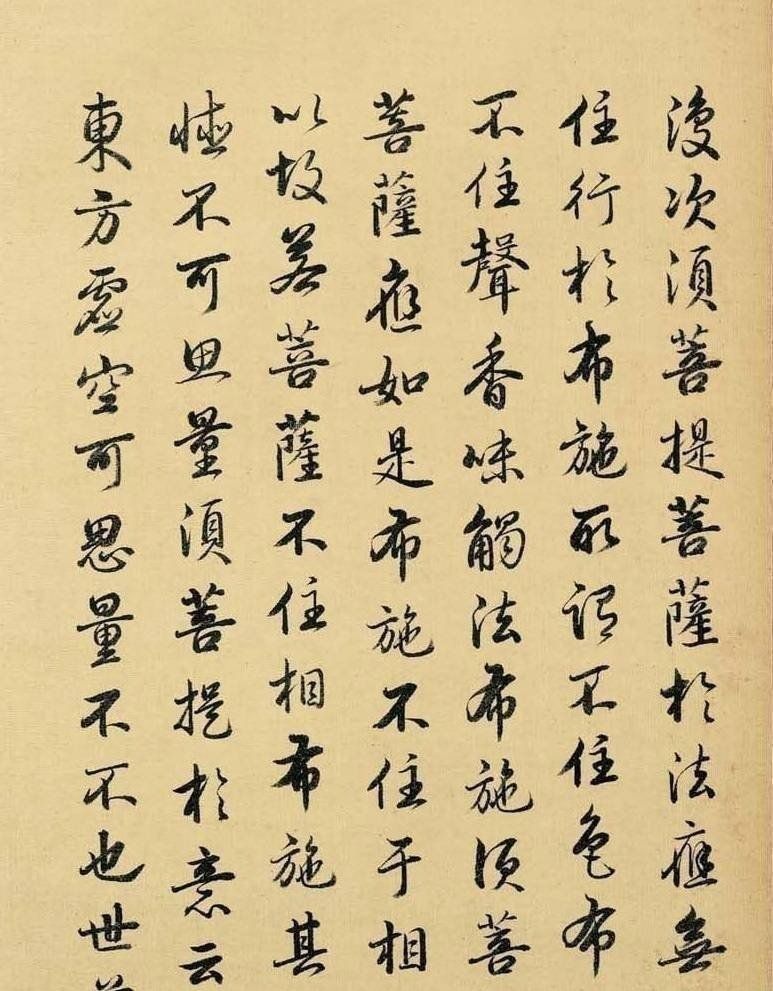 復次須菩提菩薩於法應無
住行於布施所謂不住色布
不住聲香味觸法布施須菩
菩薩應如是布施不住于相
以故若菩薩不住相布施其
德不可思量須菩提於意云
東方虛空可思量不不也世